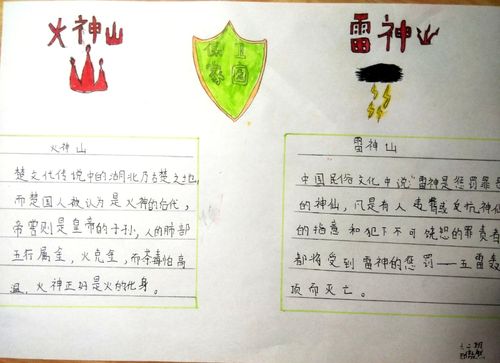 火神山
保卫
家园
雷神山
火神山
楚文化传说中的湖北乃古楚之地,
而楚国人被认为是火神的后代,
帝喾则是皇帝的子孙,人的肺部
五行属金,火克金,而荼毒怕高
温,火神正好是火的化身。
雷神山
中国民俗文化中说"雷神是惩罚罪
的神仙,凡是有人违背或反抗神仙
的指意和犯下不可饶恕的罪责者
都将受到雷神的惩罚——五雷轰
顶而灭亡。